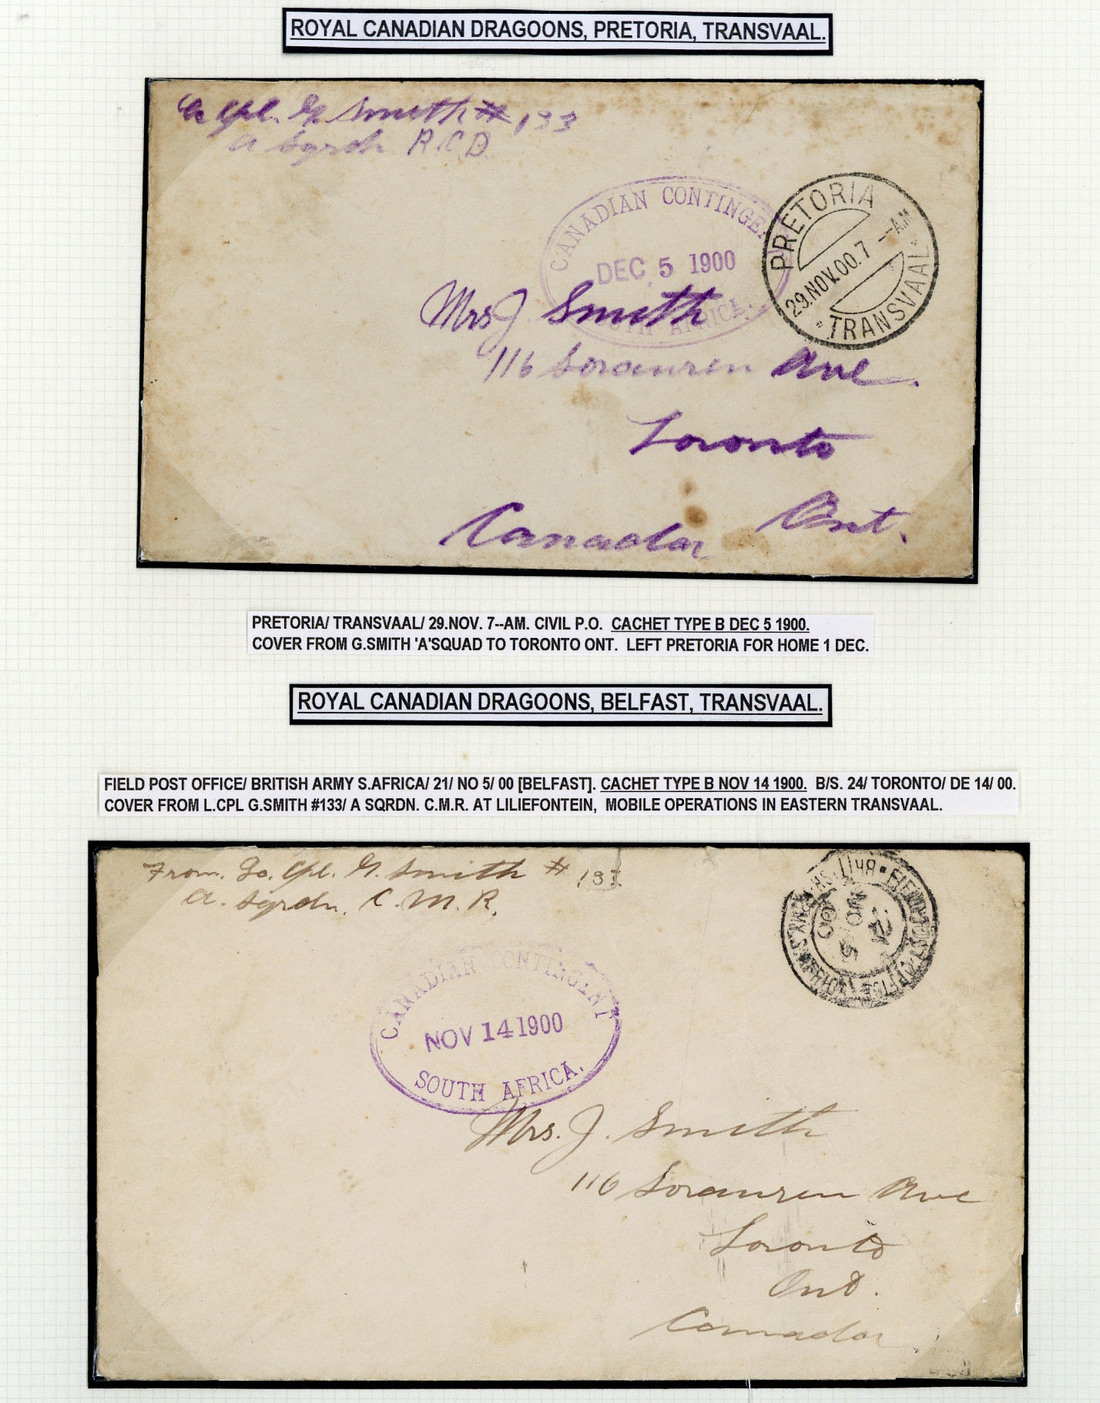 ROYAL CANADIAN DRAGOONS, PRETORIA, TRANSVAAL.
Cpl. G. Smith # 133
A Sqrdn R.C.D
CANADIAN CONTINGE
DEC 5 1900
AFRICA.
PRETORIA
29.NOV.00.7--AM
TRANSVAAL
Mrs J Smith
116 Sorauren Ave.
Toronto
Ont.
Canada
PRETORIA/ TRANSVAAL/ 29.NOV. 7--AM. CIVIL P.O. CACHET TYPE B DEC 5 1900.
COVER FROM G.SMITH 'A'SQUAD TO TORONTO ONT. LEFT PRETORIA FOR HOME 1 DEC.
ROYAL CANADIAN DRAGOONS, BELFAST, TRANSVAAL.
FIELD POST OFFICE/ BRITISH ARMY S.AFRICA/ 21/ NO 5/ 00 [BELFAST]. CACHET TYPE B NOV 14 1900. B/S. 24/ TORONTO/ DE 14/ 00.
COVER FROM L.CPL G.SMITH #133/ A SQRDN. C.M.R. AT LILIEFONTEIN, MOBILE OPERATIONS IN EASTERN TRANSVAAL.
From. Cpl. G. Smith # 133.
A. Sqrdn. C. M. R.
FIELD POST OFFICE
NO 5
00
CANADIAN CONTINGENT
NOV 14 1900
SOUTH AFRICA.
Mrs. J. Smith
116 Sorauren Ave
Toronto
Ont.
Canada